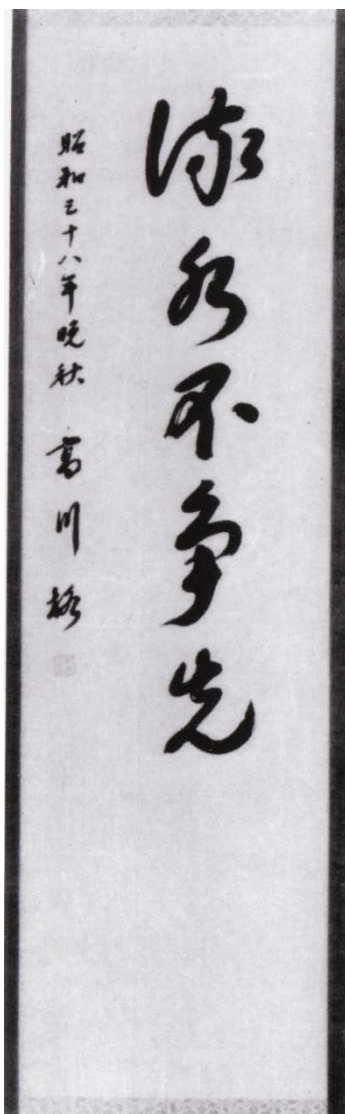 流水不争先
昭和三十八年晩秋 高川格